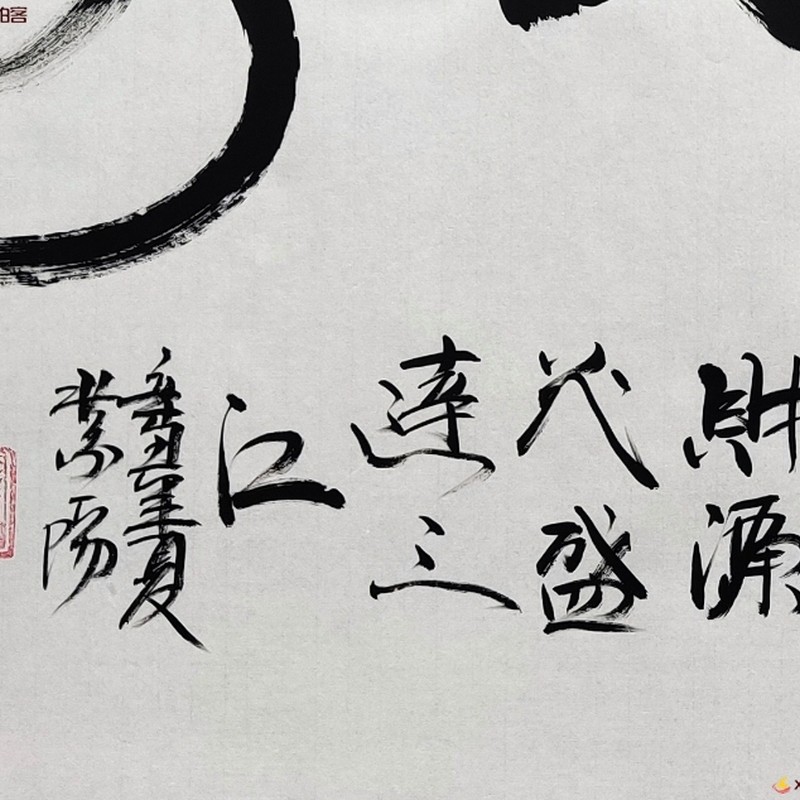 財源
茂盛
達三
江
辛丑年夏
紫陽